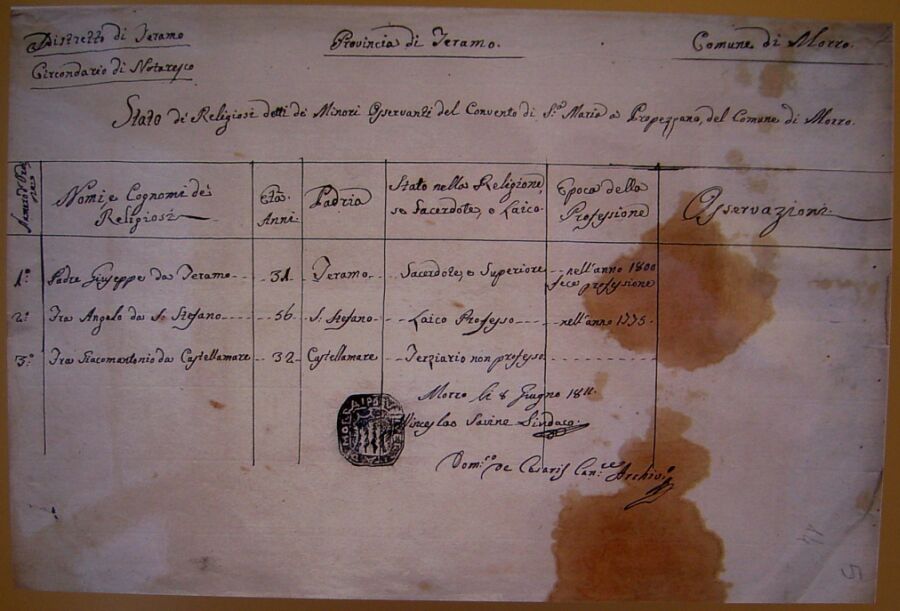 Distretto di Teramo
Provincia di Teramo.
Comune di Morro.
Circondario di Notaresco
Stato de' Religiosi detti de' Minori Osservanti del Convento di S.ª Maria a Propezzano, del Comune di Morro.
Nomi e Cognomi de' Religiosi
Età Anni
Padria
Stato nella Religione se Sacerdote, o Laico.
Epoca della Professione
Osservazioni.
1.º Padre Giuseppe da Teramo 31 Teramo Sacerdote, e Superiore nell'anno 1800 fece professione
2.º Fra Angelo da S. Stefano 56 S. Stefano Laico Professo nell'anno 1775.
3.º Fra Giacomantonio da Castellamare 32 Castellamare Terziario non professo
Morro li 8 Giugno 1811.
Vinceslao Savine Sindaco
Dom.co De Cesaris Can.re Archiv.o
14
5